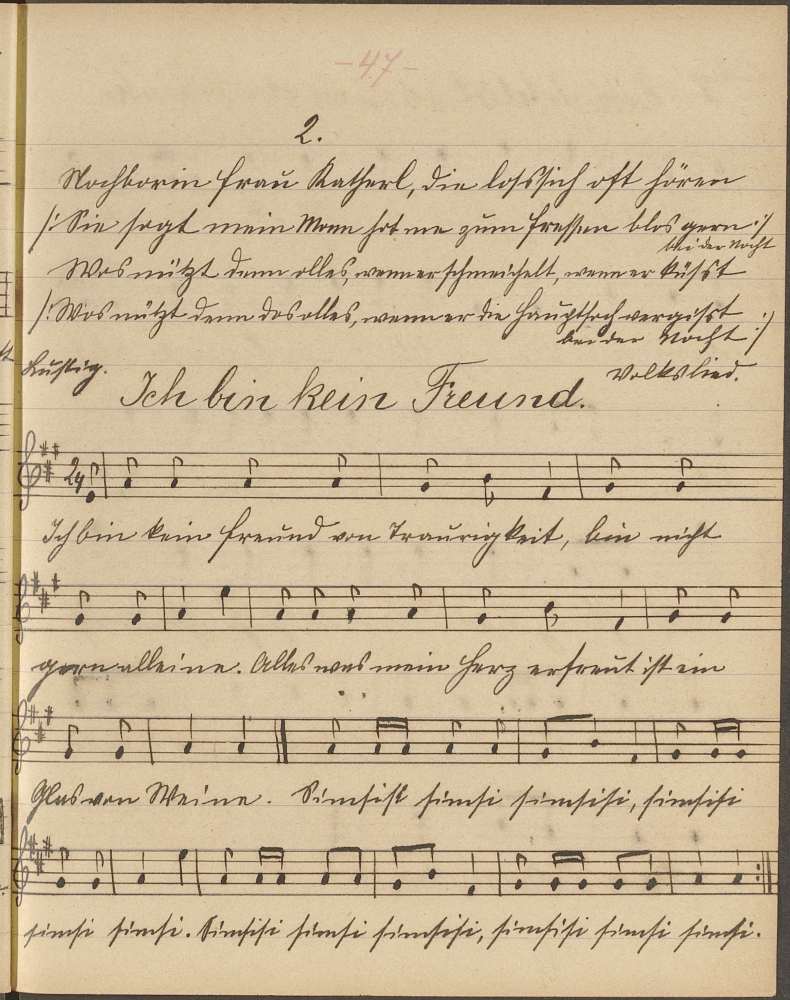 -47-
2.
Nochborin Frau Katherl, die lossich oft hören
/: Sie sogt mein Monn hot me zum fressen blos gern :/
bei der Nocht
Wos nützt denn olles, wenn er schmeichelt, wenn er küsst
/: Wos nützt denn dos olles, wenn er die Hauptsoch vergisst :/
bei der Nocht
Lustig.
Volkslied.
Ich bin kein Freund.
2/4
Ich bin kein Freund von Traurigkeit, bin nicht
gern alleine. Alles was mein Herz erfreut ist ein
Glas von Weine. Simsisi simsi simsisi, simsisi
simsi simsi. Simsisi simsi simsisi, simsisi simsi simsi.